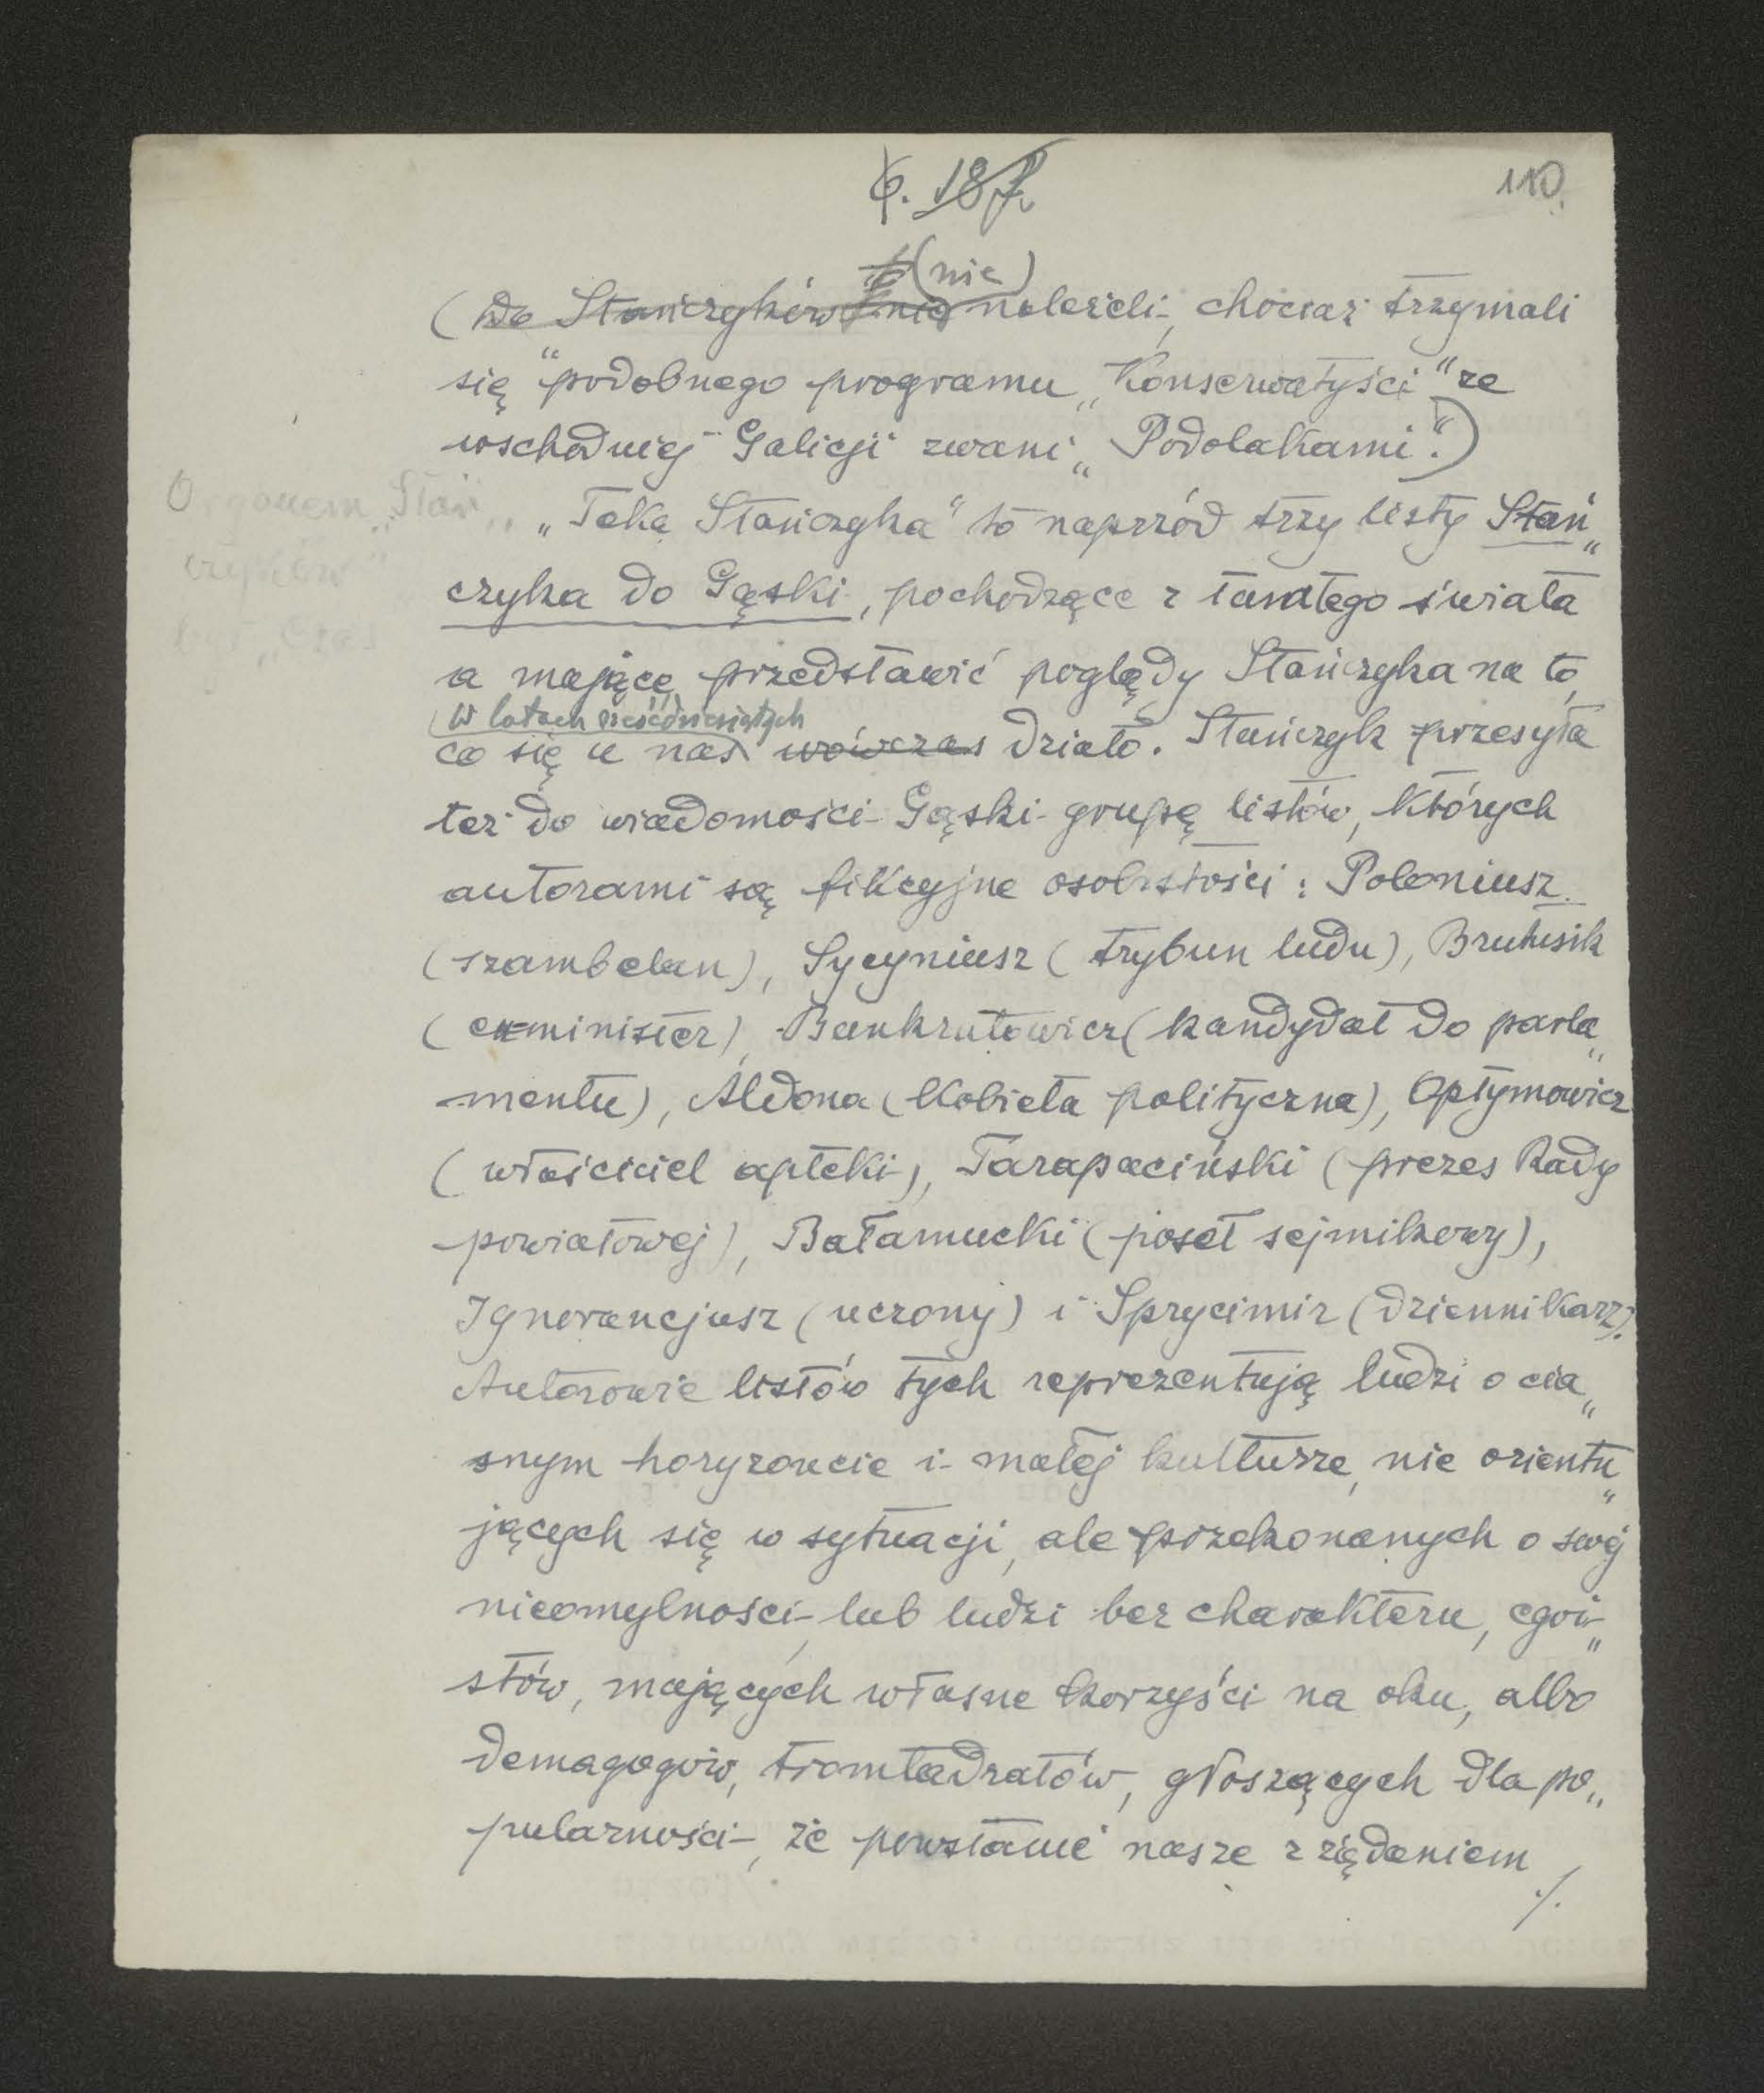 6. 187.
110.
(nie)
(Do Stańczyków nie należeli, chociaż trzymali
się podobnego programu „Konserwatyści" ze
wschodniej Galicji zwani „Podolakami".)
Organem „Stań„
czyków"
był „Czas"
„Teka Stańczyka" to naprzód trzy listy Stań„
czyka do Gąski, pochodzące z tamtego świata
a mające przedstawić poglądy Stańczyka na to,
w latach sześćdziesiątych
co się u nas wówczas działo. Stańczyk przesyła
też do wiadomości Gąski grupę listów, których
autorami są fikcyjne osobistości: Poloniusz
(szambelan), Sycyniusz (trybun ludu), Brutusik
(ex-minister), Bankrutowicz (kandydat do parla„
mentu), Aldona (kobieta polityczna), Optymowicz
(właściciel apteki), Tarapaciński (prezes Rady
powiatowej), Bałamucki (poseł sejmikowy),
Ignorancjusz (uczony) i Sprycimir (dziennikarz).
Autorowie listów tych reprezentują ludzi o cia„
snym horyzoncie i małej kulturze, nie orientu„
jących się w sytuacji, ale przekonanych o swej
nieomylności, lub ludzi bez charakteru, egoi„
stów, mających własne korzyści na oku, albo
demagogów, tromtadratów, głoszących dla po„
pularności, że powstanie nasze z żądaniem
./.